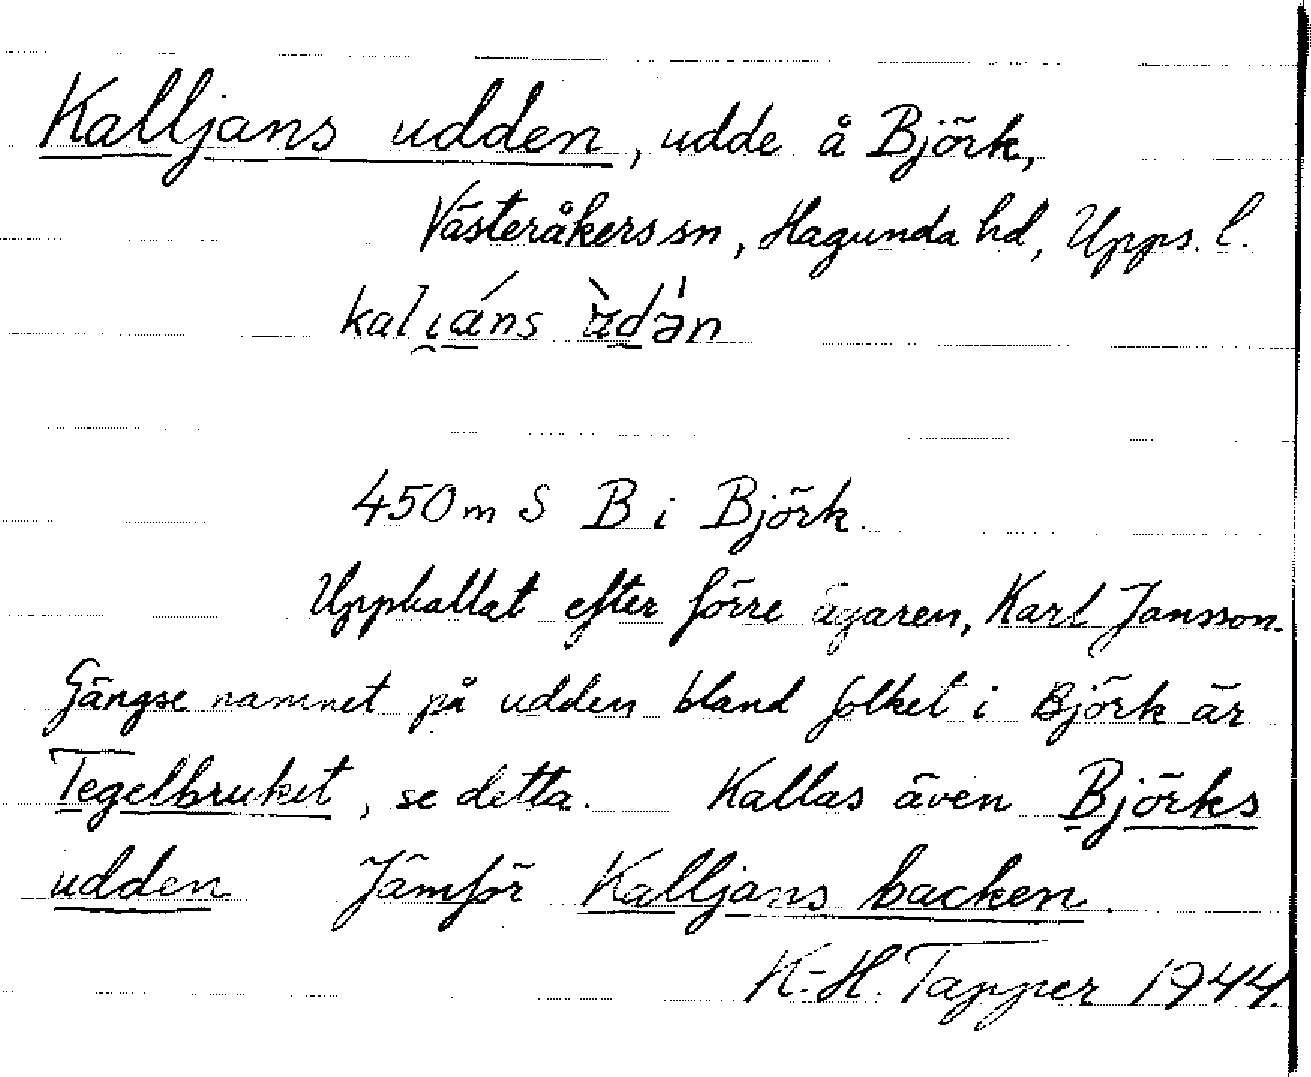 Kalljans udden, udde å Björk,
Västeråkers sn, Hagunda hd, Upps. l.
450 m S B i Björk.
Uppkallat efter förre ägaren, Karl Jansson.
Gängse namnet på udden bland folket i Björk är
Tegelbruket, se detta. Kallas även Björks
udden Jämför Kalljans backen.
K-H. Tapper 1944.